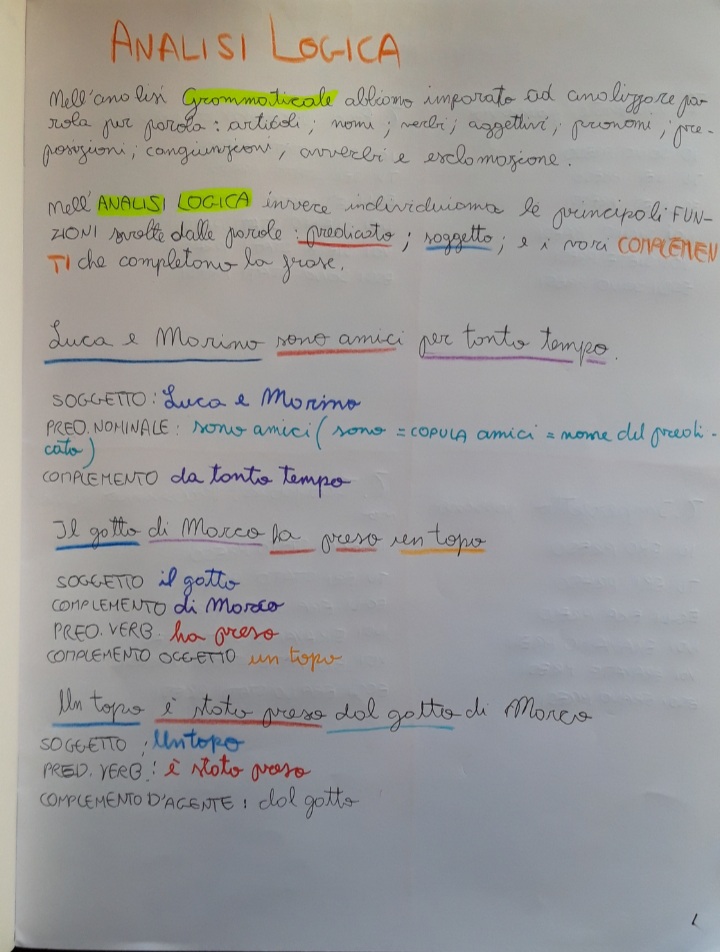 ANALISI LOGICA
Nell'analisi Grammaticale abbiamo imparato ad analizzare pa-
rola per parola: articoli; nomi; verbi; aggettivi; pronomi; pre-
posizioni; congiunzioni, avverbi e esclamazione.
Nell'ANALISI LOGICA invece individuiamo le principali FUN-
ZIONI svolte dalle parole: predicato; soggetto; e i vari COMPLEMEN
TI che completono la frase.
Luca e Marino sono amici per tanto tempo.
SOGGETTO: Luca e Marino
PRED.NOMINALE: sono amici (sono = COPULA amici = nome del predi-
cato)
COMPLEMENTO da tanto tempo
Il gatto di Marco ha preso un topo
SOGGETTO il gatto
COMPLEMENTO di Marco
PRED. VERB. ha preso
COMPLEMENTO OGGETTO un topo
Un topo è stato preso dal gatto di Marco
SOGGETTO: Un topo
PRED. VERB.: è stato preso
COMPLEMENTO D'AGENTE: dal gatto